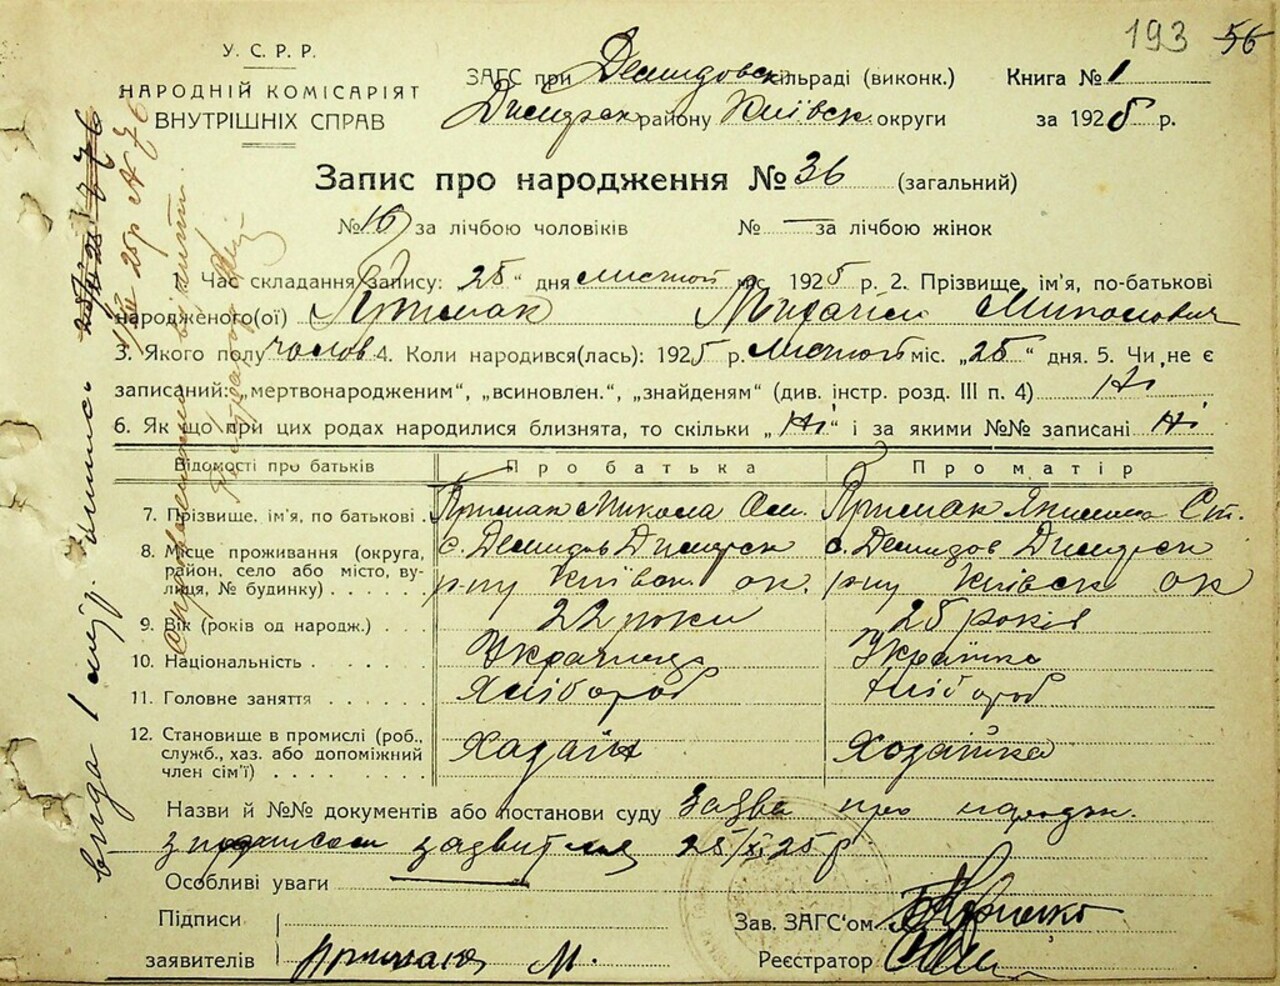 193 56
У. С. Р. Р.
НАРОДНІЙ КОМІСАРІЯТ
ВНУТРІШНІХ СПРАВ
ЗАГС при Демидовск сільраді (виконк.) Книга № 1
Димирск району Київск. округи за 1925 р.
Запис про народження № 36 (загальний)
№ 16 за лічбою чоловіків № — за лічбою жінок
Час складання запису: „25“ дня листопад міс. 1925 р. 2. Прізвище, ім'я, по-батькові
народженого(ої) Примак Миколович
3. Якого полу чолов 4. Коли народився(лась): 1925 р. листопад міс. „25“ дня. 5. Чи не є
записаний: „мертвонародженим“, „всиновлен.“, „знайденям“ (див. інстр. розд. III п. 4) Ні
6. Як що при цих родах народилися близнята, то скільки „Ні“ і за якими №№ записані Ні
Відомості про батьків Про батька Про матір
7. Прізвище, ім'я, по батькові. Примак Микола Примак Ст.
8. Місце проживання (округа, район, село або місто, вулиця, № будинку) с. Демидов Димирск с. Демидов Димирск
р-ну Київск. ок. р-ну Київск ок
9. Вік (років од народж.) 22 роки 25 років
10. Національність Українець Українка
11. Головне заняття Хлібороб Хлібороб
12. Становище в промислі (роб., служб., хаз. або допоміжний член сім'ї) Хазаїн Хозяйка
Назви й №№ документів або постанови суду Заява про народж.
з підписом заявителя 25/XI 25 р
Особливі уваги —
Підписи
заявителів Примак М.
Зав. ЗАГС'ом
Реєстратор